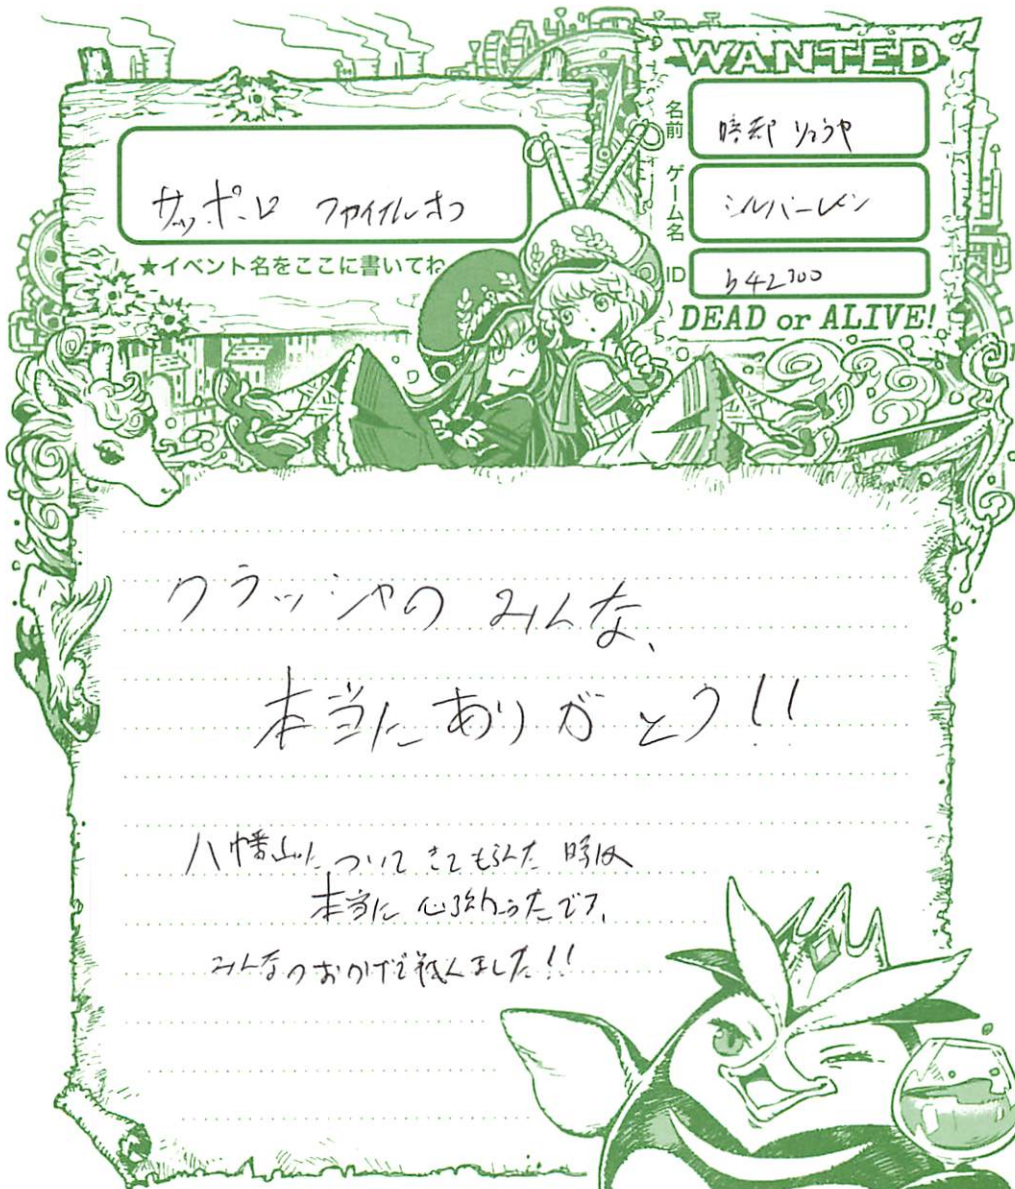 WANTED
名前
ゲーム名
シルバーレイン
ID
b42700
DEAD or ALIVE!
サッポロ ファイナルオフ
★イベント名をここに書いてね
クラッシャの みんな、
本当にありがとう!!
八幡山に ついて きてもらえた 時は
本当に 心強かったです。
みんなのおかげで
ました!!